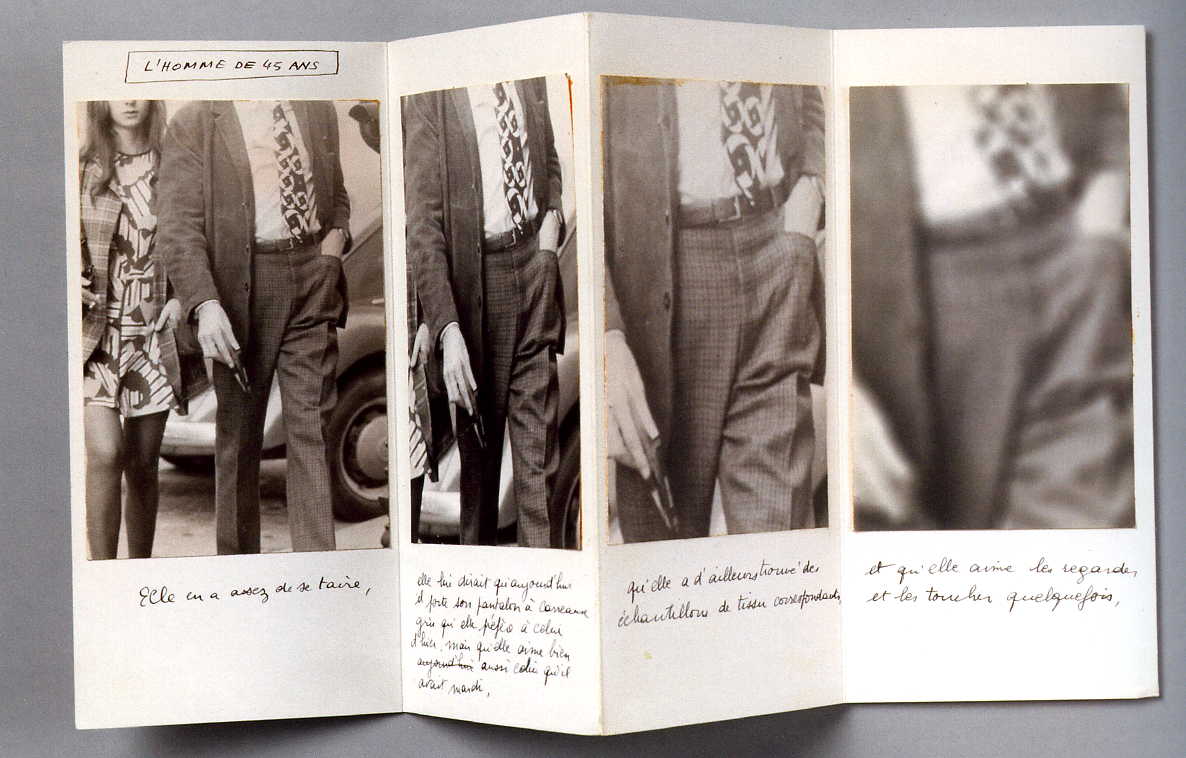 L'HOMME DE 45 ANS
Elle en a assez de se taire,
elle lui dirait qu'aujourd'hui
il porte son pantalon à carreaux
gris qu'elle préfère à celui
d'hier, mais qu'elle aime bien
aujourd'hui aussi celui qu'il
avait mardi,
qu'elle a d'ailleurs trouvé des
échantillons de tissu correspondants,
et qu'elle aime les regarder,
et les toucher quelquefois,